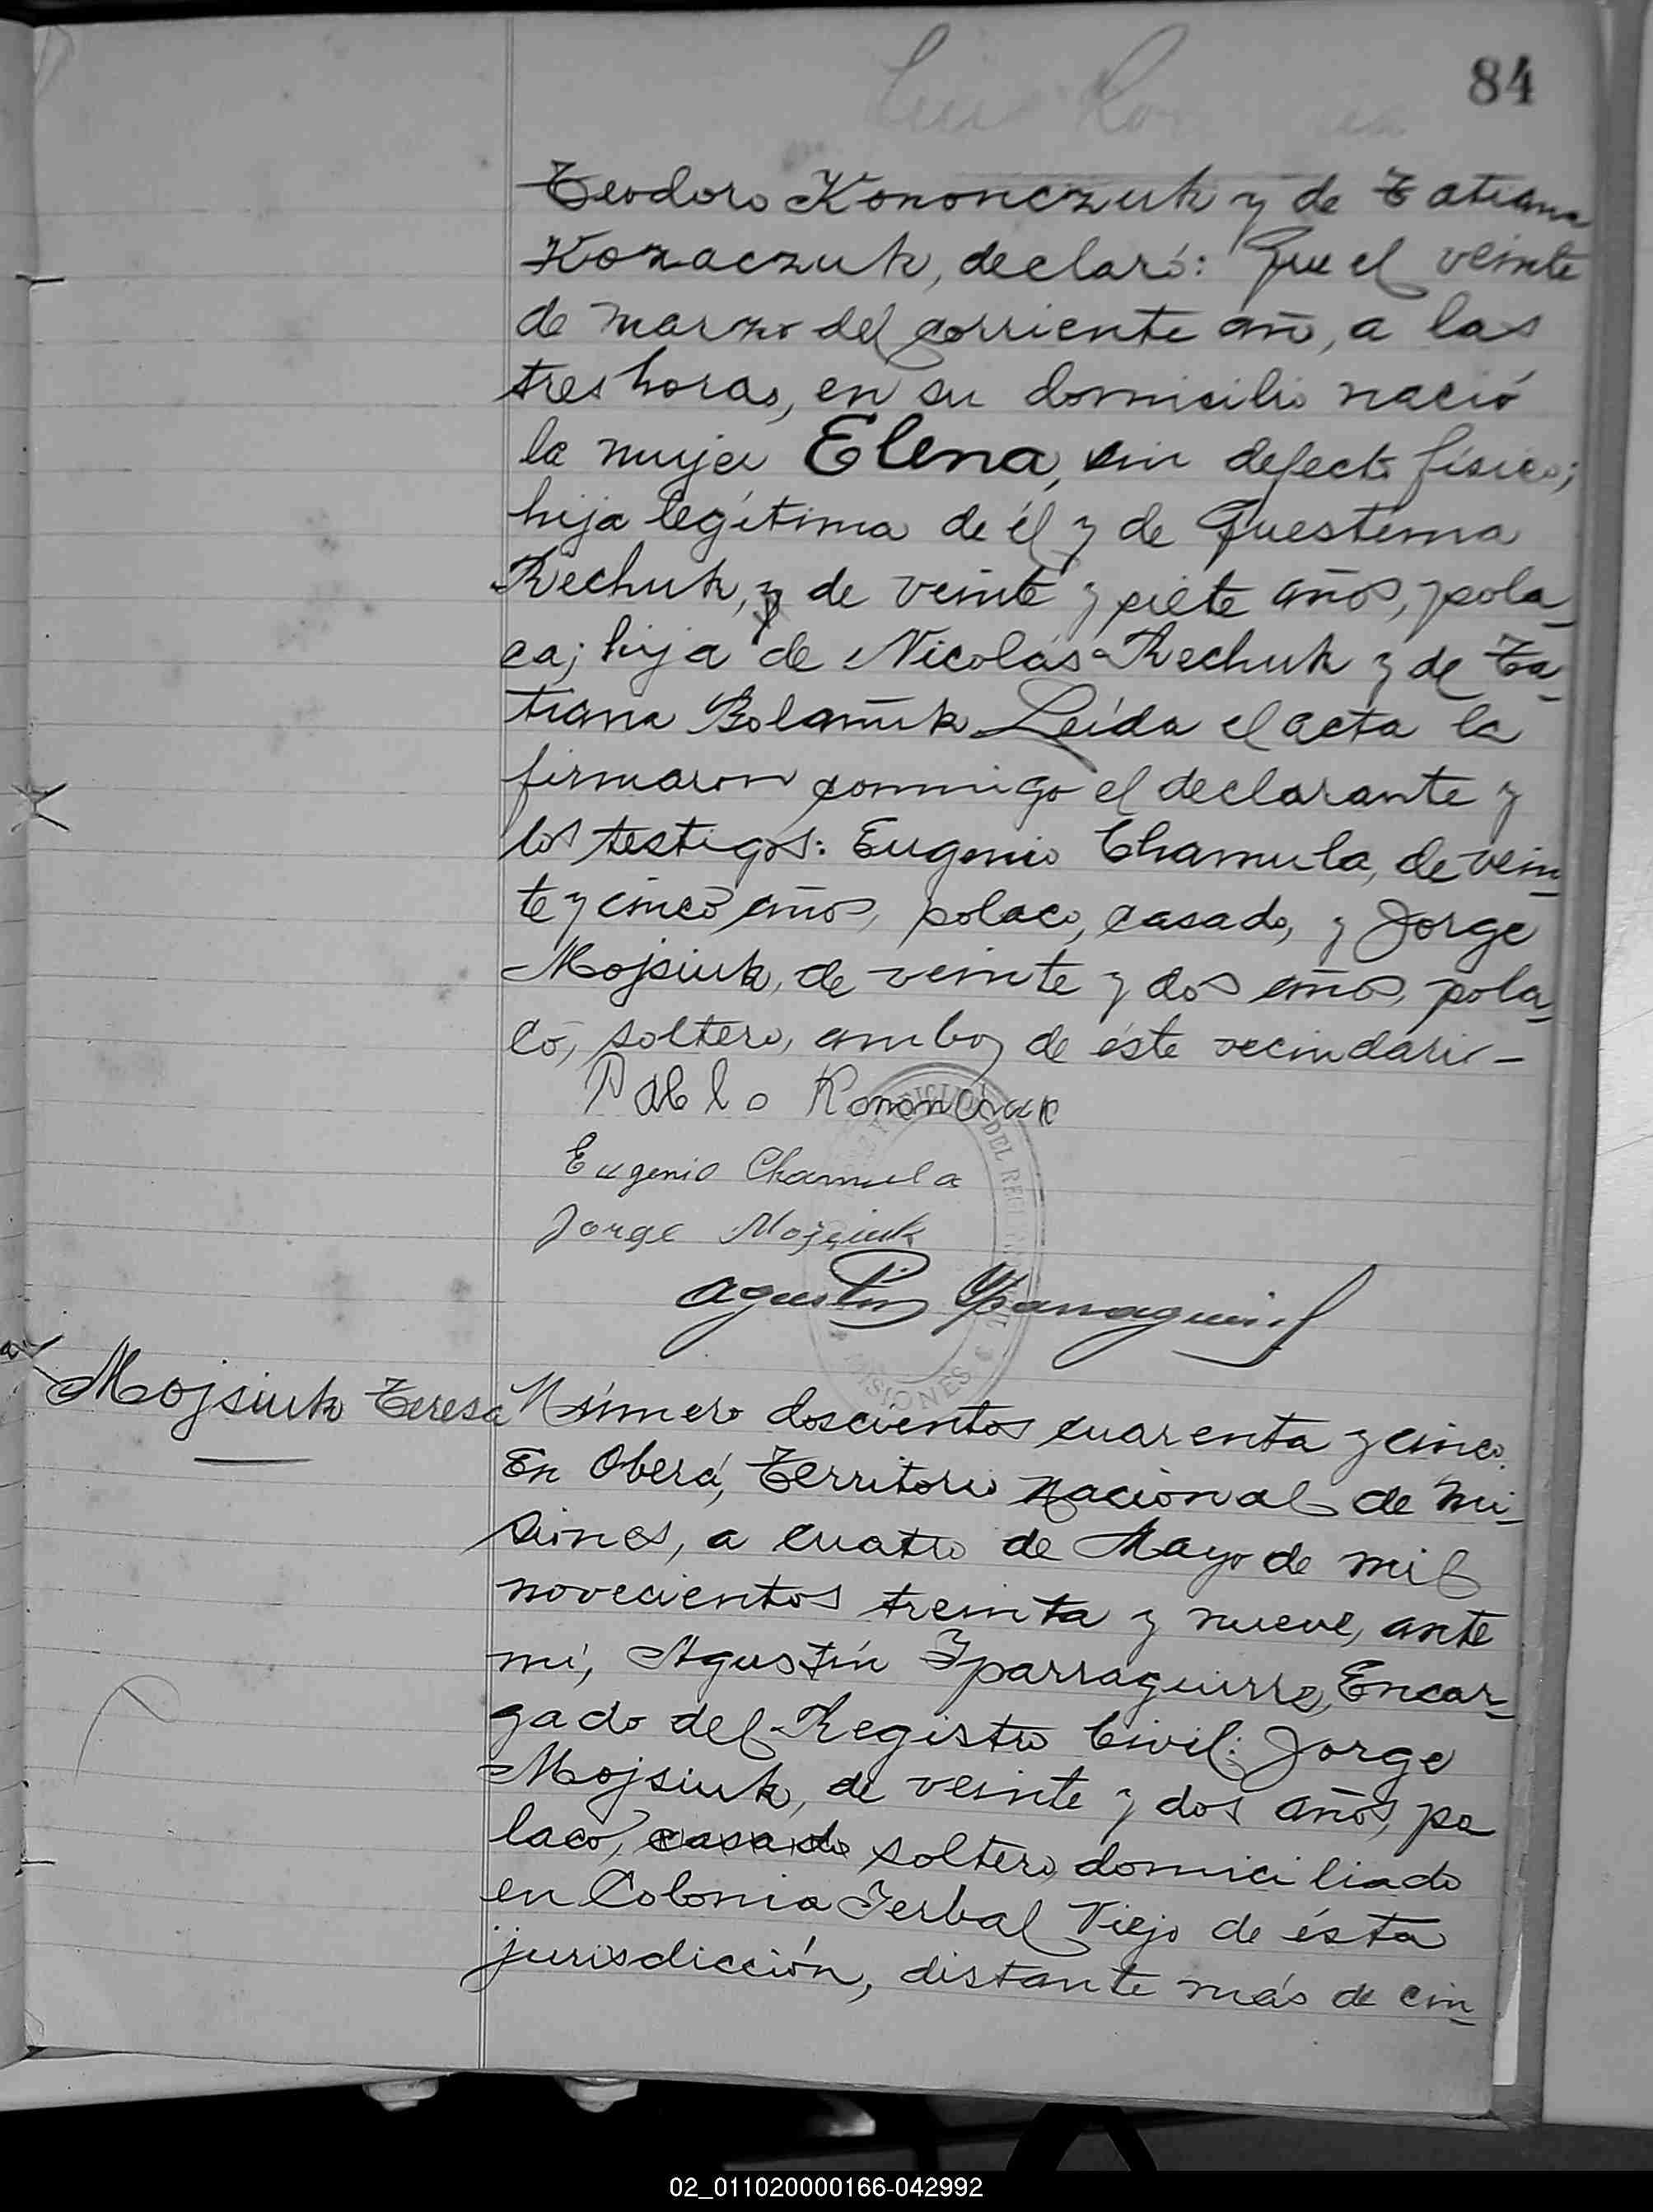 84
Teodoro Kononczuk y de Tatiana
Kozaczuk, declaró: Que el veinte
de marzo del corriente año, a las
tres horas, en su domicilio nació
la mujer Elena, sin defecto físico;
hija legítima de él y de Questema
Rechuk, y de veinte y siete años, pola-
ca; hija de Nicolás Rechuk y de Ta-
tiana Bolañuk. Leída el acta la
firmaron conmigo el declarante y
los testigos: Eugenio Chamula, de vein-
te y cinco años, polaco, casado, y Jorge
Mojsiuk, de veinte y dos años, pola-
co, soltero, ambos de éste vecindario -
Pablo Kononczuk
Eugenio Chamula
Jorge Mojsiuk
DEL
MISIONES
Agustín Yparraguirre
Mojsiuk Teresa
Número doscientos cuarenta y cinco.
En Oberá, Territorio Nacional de Mi-
siones, a cuatro de Mayo de mil
novecientos treinta y nueve, ante
mí, Agustín Iparraguirre, Encar-
gado del Registro Civil: Jorge
Mojsiuk, de veinte y dos años, po
laco, casado soltero, domiciliado
en Colonia Yerbal Viejo de ésta
jurisdicción, distante más de cin-
02_011020000166-042992